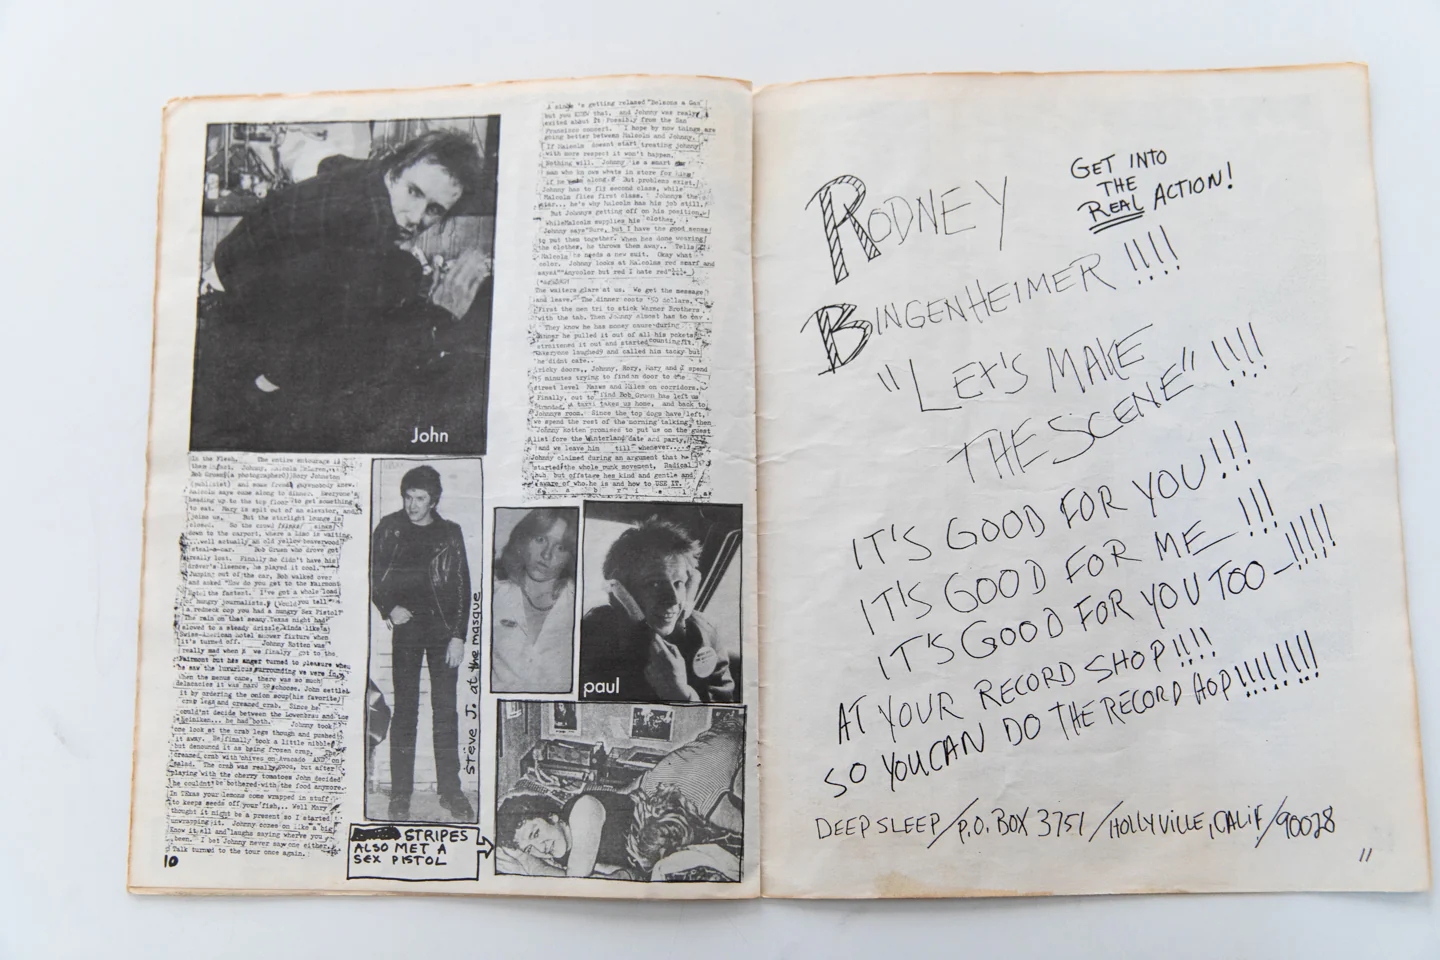 John
In the Flesh... The entire entourage is
them @ fact. Johnny, Malcolm McLaren,
Bob Gruen(a photographer) Rory Johnston
(publicist) and some french guys nobody knew.
Malcolm says come along to dinner. Everyone's
heading up to the top floor to get something
to eat. Mary is spit out of an elevator, and
joins us. But the starlight Lounge is
closed. So the crowd
down to the carport, where a Limo is waiting.
...well actually an old yellow
steal-a-car. Bob Gruen who drove got
really lost. Finally he didn't have his
driver's lisence, he played it cool.
Jumping out of the car, Bob walked over
and asked "How do you get to the Fairmont
Hotel the fastest. I've got a whole load
of hungry journalists. (Would you tell
a redneck cop you had a hungry Sex Pistol?
The rain on that Texas night had
slowed to a steady drizzle, kinda like a
Swiss-American hotel shower fixture when
it's turned off. Johnny Rotten was
really mad when we finally got to the
Fairmont but his anger turned to pleasure when
he saw the luxurious surrounding we were in.
When the menus came, there was so much
delacacies it was hard to choose. John settled
it by ordering the onion soup(his favorite)
crab legs and creamed crab. Since he
could'nt decide between the Lowenbrau and the
Heiniken... he had both. Johnny took
one look at the crab legs though and pushed
it away. He finally took a little nibble
but denounced it as being frozen crap, The
creamed crab with chives on Avacado AND on
salad. The crab was really good, but after
playing with the cherry tomatoes John decided
he couldnt be bothered with the food anymore.
In TExas your lemons come wrapped in stuff
to keep seeds off your fish,.. Well Mary
thought it might be a present so I started
unwrapping it. Johnny comes on like a big
Know it all and laughs saying where you
been. I bet Johnny never say one either.
Talk turned to the tour once again.
10
A single 's getting relased "Belsens a Gas"
but you KNEW that, and Johnny was really
exited about it Possibly from the San
Francisco concert. I hope by now things are
going better between Malcolm and Johnny.
If Malcolm doesnt start treating johnny
with more respect it won't happen.
Nothing will. Johnny is a smart
man who knows whats in store for him
if he along. But problems exist.
Johnny has to fly second class, while
Malcolm flies first class. Johnnys the
star... he's why malcolm has his job still.
But Johnnys getting off on his position.
While Malcolm supplies his clothes,
Johnny says"Sure, but I have the good sense
to put them together. When hes done wearing
the clothes, he throws them away.. Tells
Malcolm he needs a new suit. Okay what
color. Johnny looks at Malcolms red scarf and
says"Anycolor but red I hate red"
The waiters glare at us. We get the message
and leave. The dinner costs '50 dollars.
First the men try to stick Warner Brothers
with the tab. Then Johnny almost has to
They know he has money cause during
dinner he pulled it out of all his pokets
straitened it out and started counting it.
Everyone laughed and called him tacky but
he didnt care.
Tricky doors,, Johnny, Rory, Mary and I spend
15 minutes trying to find an door to the
street level Mazes and Miles on corridors.
Finally, out to find Bob Gruen has left us
stranded. A taxi takes us home, and back to
Johnnys room. Since the top dogs have left,
we spend the rest of the morning talking, then
Johnny Rotten promises to put us on the guest
list fore the Winterland date and party,
and we leave him till whenever...
Johnny claimed during an argument that he
started the whole punk movement. Radical
huh but offstage hes kind and gentle and
aware of who he is and how to USE IT.
steve J. at the masque
paul
STRIPES
ALSO MET A
SEX PISTOL
GET INTO
THE
REAL ACTION!
RODNEY
BINGENHEIMER !!!!
"LET'S MAKE
THE SCENE" !!!!
IT'S GOOD FOR YOU!!!
IT'S GOOD FOR ME !!!
IT'S GOOD FOR YOU TOO—!!!!!
AT YOUR RECORD SHOP!!!!
SO YOU CAN DO THE RECORD HOP!!!!!!!!
DEEP SLEEP/P.O. BOX 3751/HOLLYVILLE, CALIF/90028
11